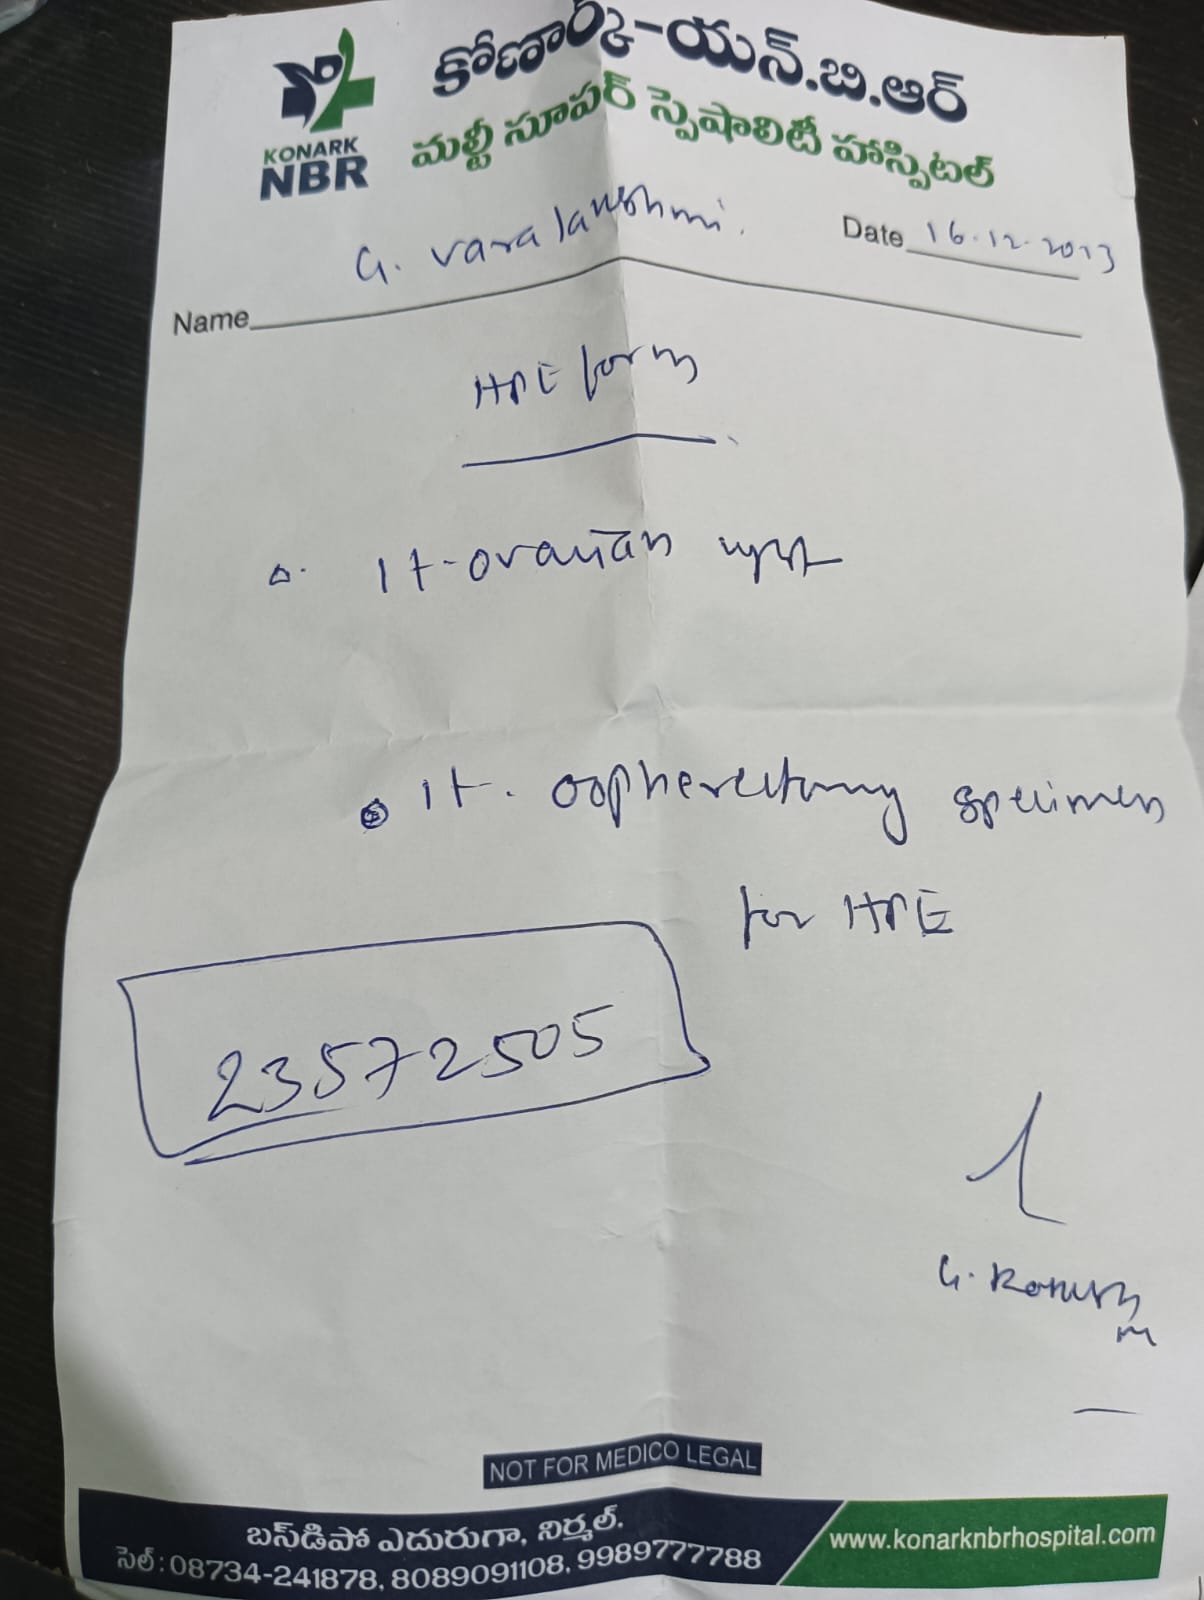 కోణార్క్-యన్.బి.ఆర్
మల్టీ సూపర్ స్పెషాలిటీ హాస్పిటల్
KONARK
NBR
Date 16.12.2023
Name G. Varalakshmi.
HPE form
Δ. lt-ovarian cyst
lt. oopherectomy specimen
for HPE
23572505
NOT FOR MEDICO LEGAL
బస్‌డిపో ఎదురుగా, నిర్మల్.
సెల్ : 08734-241878, 8089091108, 9989777788
www.konarknbrhospital.com